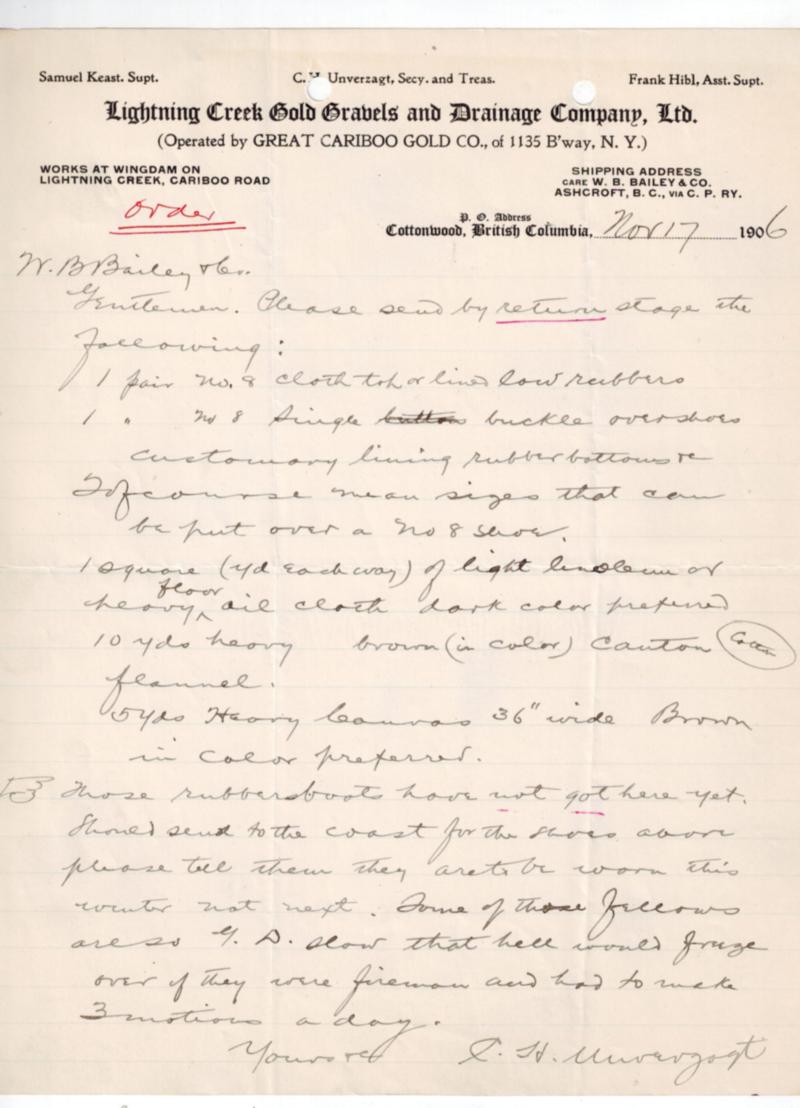 Samuel Keast. Supt. C. H. Unverzagt, Secy. and Treas. Frank Hibl, Asst. Supt.
Lightning Creek Gold Gravels and Drainage Company, Ltd.
(Operated by GREAT CARIBOO GOLD CO., of 1135 B'way, N. Y.)
WORKS AT WINGDAM ON
LIGHTNING CREEK, CARIBOO ROAD
SHIPPING ADDRESS
CARE W. B. BAILEY & CO.
ASHCROFT, B. C., VIA C. P. RY.
Order
P. O. Address
Cottonwood, British Columbia, Nov 17 1906
W. B Bailey & Co.
Gentlemen. Please send by return stage the
following:
1 pair No. 8 cloth top or lined low rubbers
1 " No 8 Single button buckle overshoes
customary lining rubber bottoms &c
I of course mean sizes that can
be put over a No 8 shoe.
1 square (yd each way) of light linoleum or
heavy floor oil cloth dark color preferred
10 yds heavy brown (in color) Canton
flannel.
5 yds Heavy Canvas 36" wide Brown
in color preferred.
Those rubbersboots have not got here yet.
Should send to the coast for the shoes above
please tell them they are to be worn this
winter not next. Some of those fellows
are so G. D. slow that hell would freeze
over if they were fireman and had to make
3 motions a day.
Yours &c C. H. Unverzagt